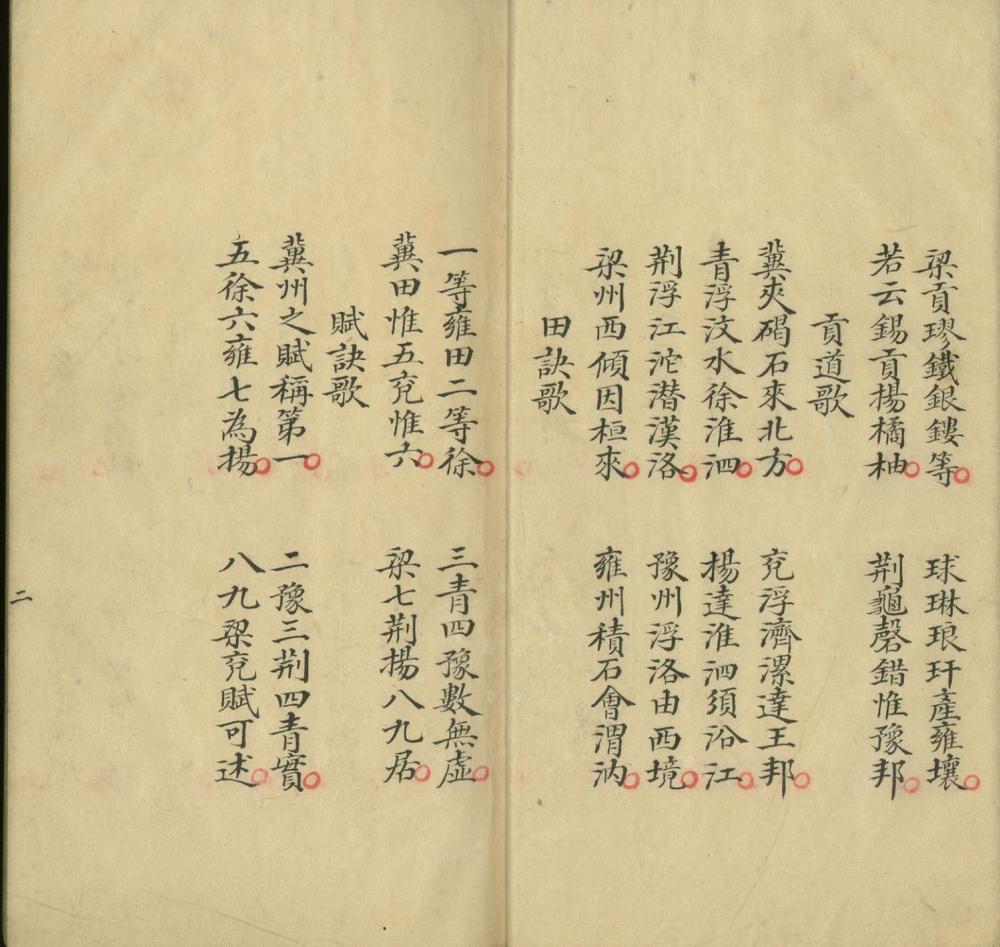 梁貢璆鐵銀鏤等　球琳琅玕產雍壤
若云錫貢揚橘柚　荆龜磬錯惟豫邦
貢道歌
冀夾碣石來北方　兖浮濟漯達王邦
青浮汶水徐淮泗　揚達淮泗須沿江
荆浮江沱潜漢洛　豫州浮洛由西境
梁州西傾因桓來　雍州積石會渭汭
田訣歌
一等雍田二等徐　三青四豫數無虛
冀田惟五兖惟六　梁七荆揚八九居
賦訣歌
冀州之賦稱第一　二豫三荆四青實
五徐六雍七為揚　八九梁兖賦可述
二